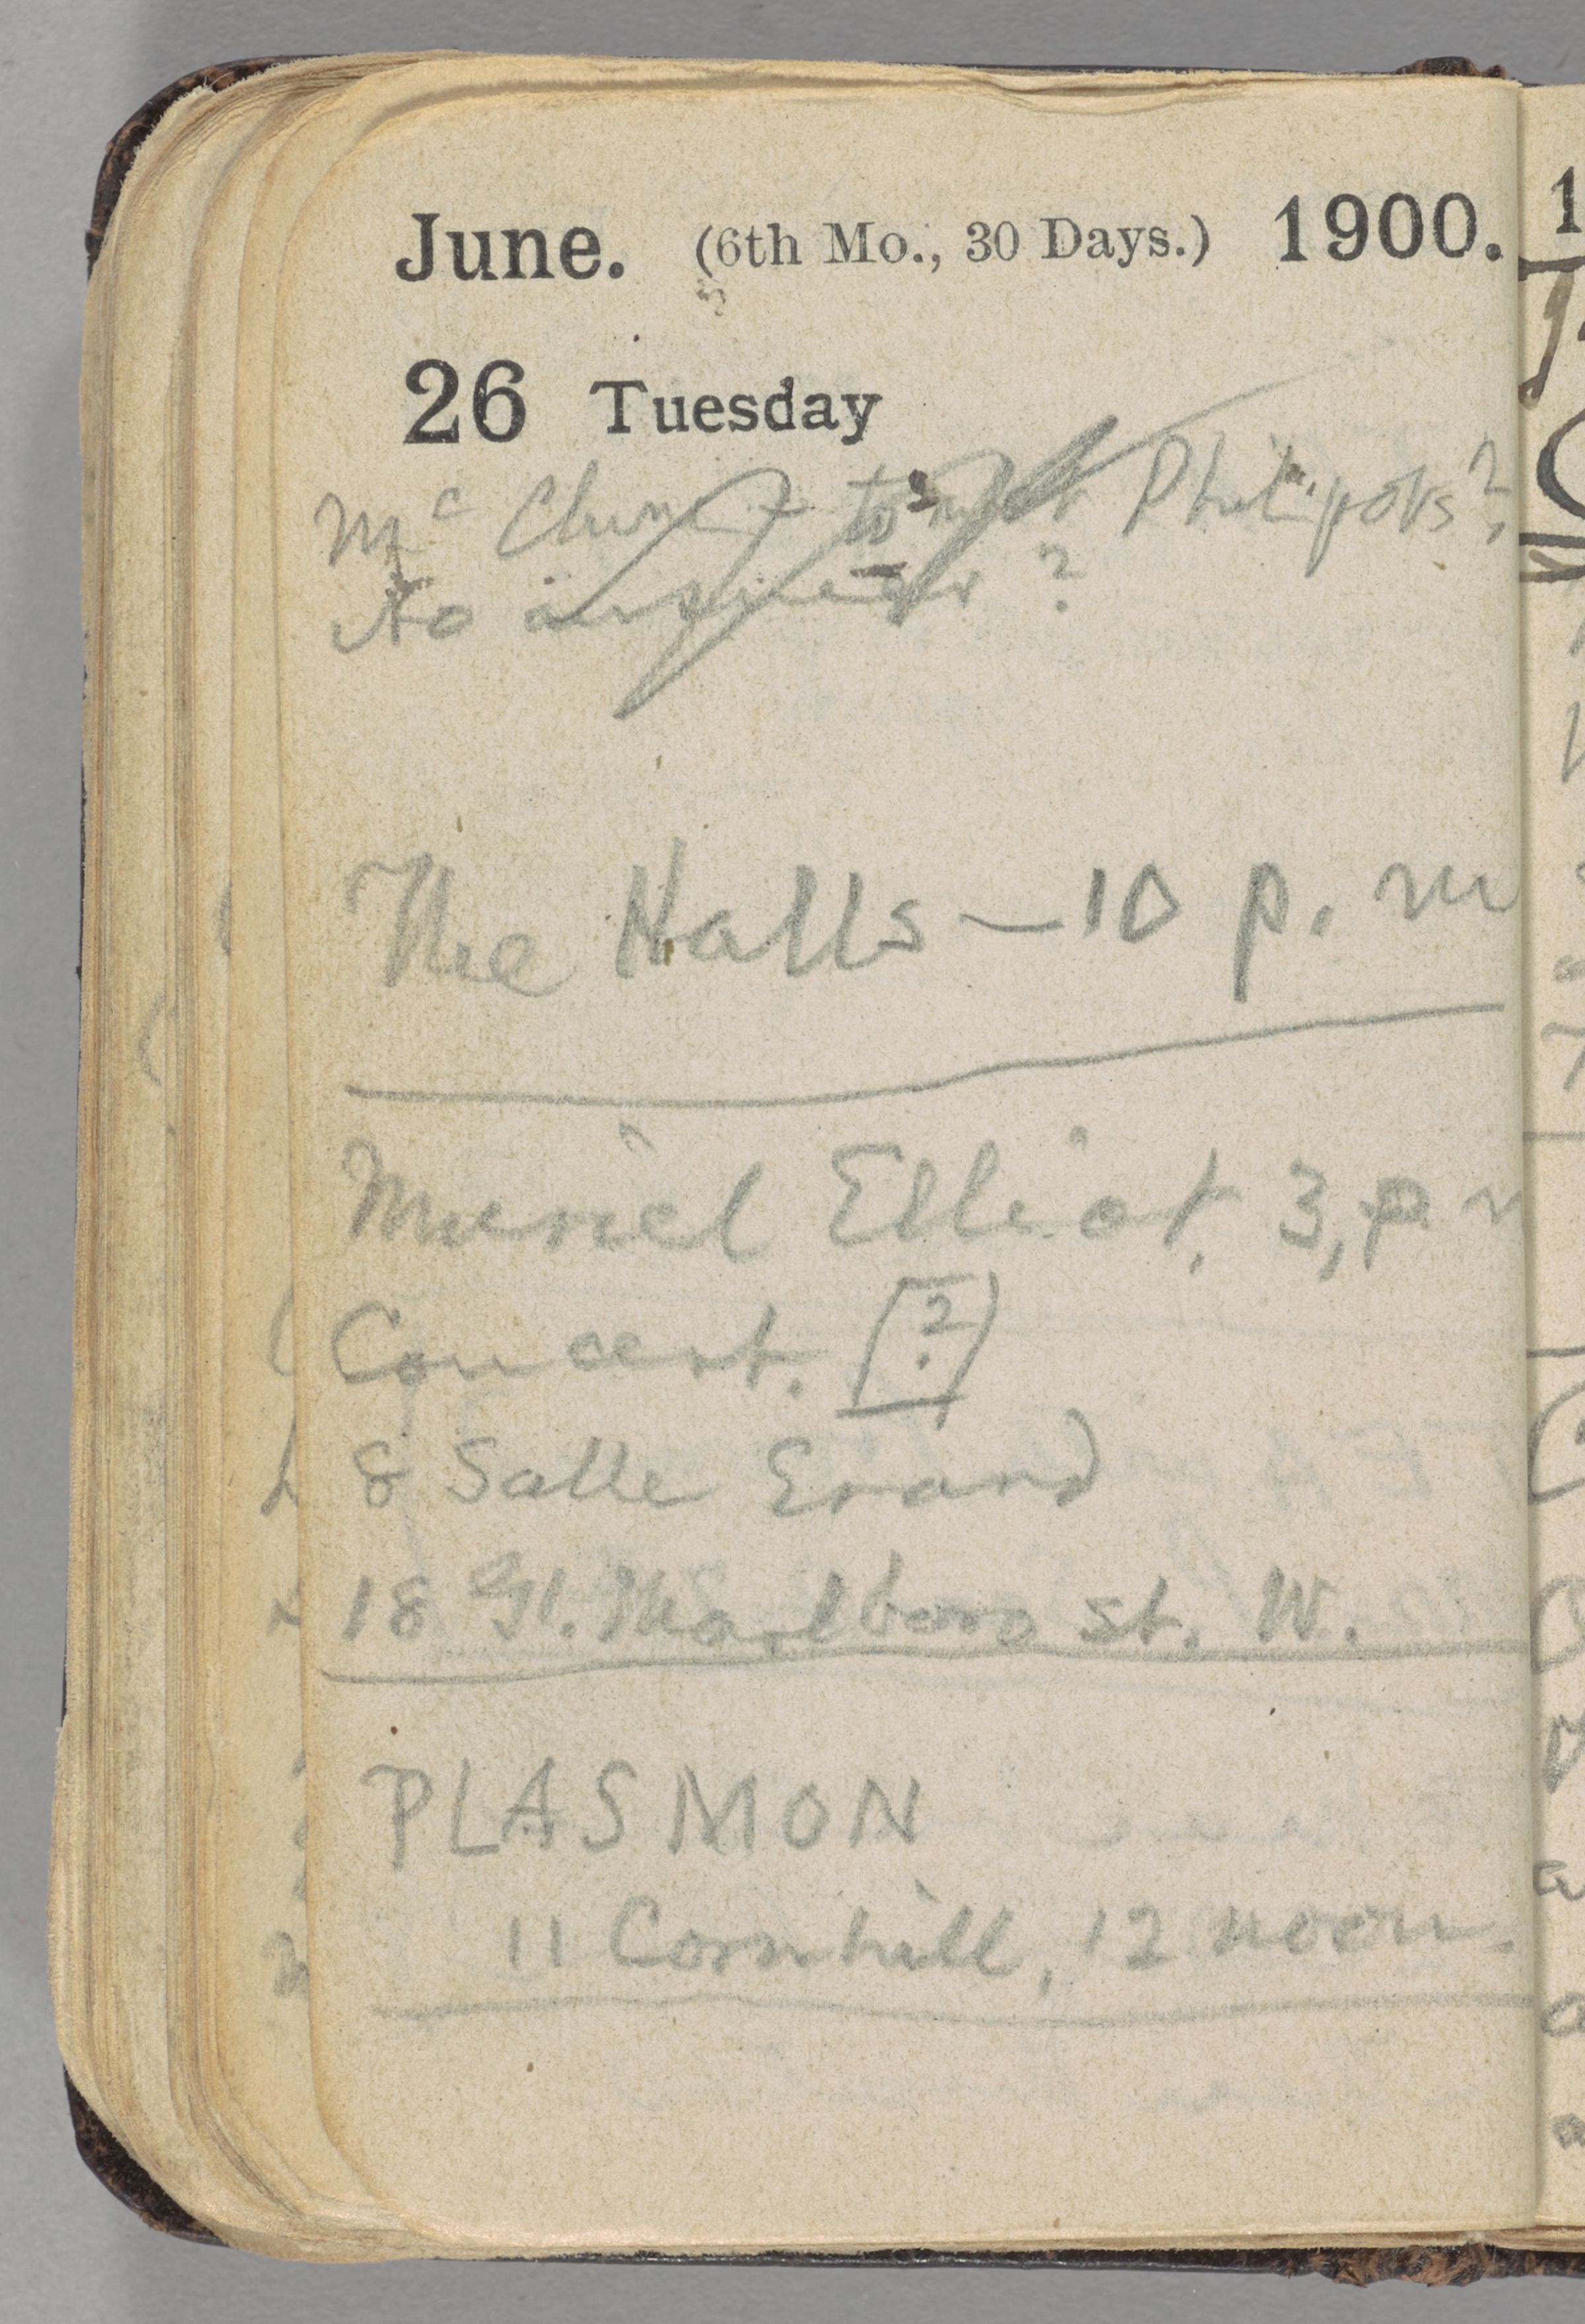 June. (6th Mo., 30 Days.) 1900.
26 Tuesday
Mc Philpots?
No answer?
The Halls—10 p. m
Muriel Elliot, 3, p m
Concert. [?]
8 Salle Erard
18 Gt. Marlboro st. W.
PLASMON
11 Cornhill, 12 noon.